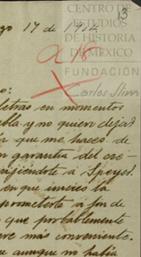 13
CENTRO DE
ESTUDIOS
DE HISTORIA
DE MÉXICO
go 17 de 1912
a 18
FUNDACIÓN
Carlos Slim
o:
letras en momentos
bla y no quiero dejar
ir que me haces de
n garantía del cre-
rigiéndote a Speyer.
en que inicies la
prometerte a fin de
que probablemente
ere más conveniente.
aunque no había